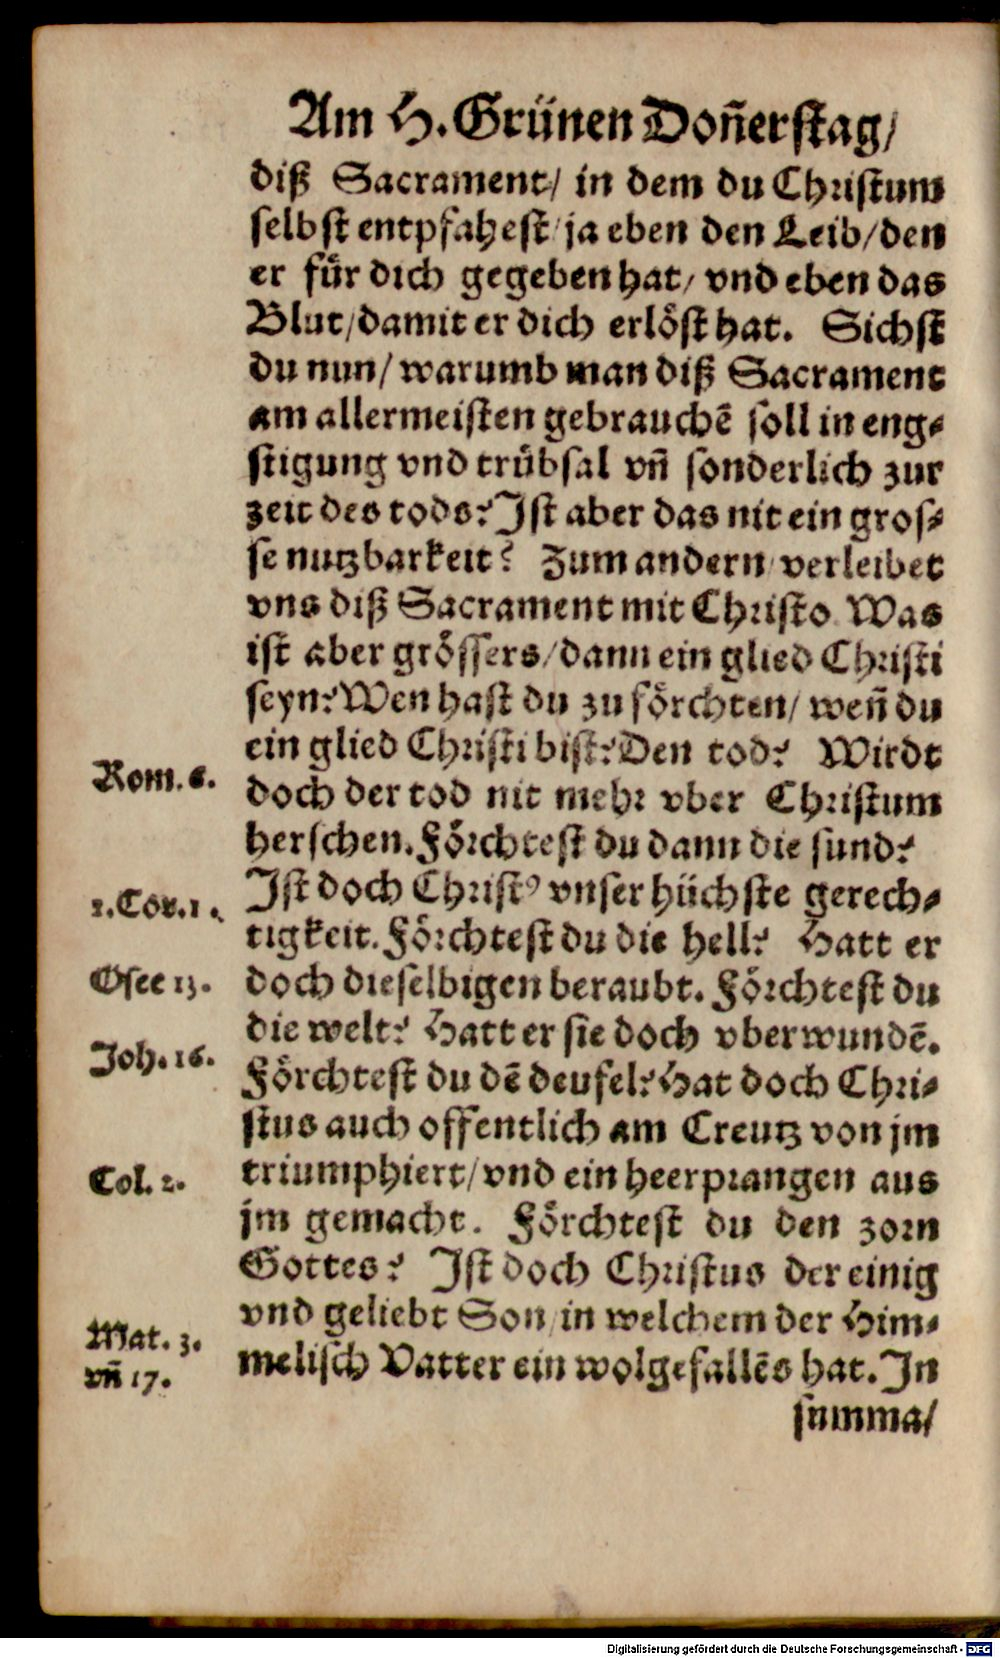 Am H. Grünen Doñerstag/
diß Sacrament/ in dem du Christum
selbst entpfahest/ ja eben den Leib/ den
er für dich gegeben hat/ vnd eben das
Blut/ damit er dich erlöst hat. Sichst
du nun/ warumb man diß Sacrament
am allermeisten gebrauchẽ soll in eng⸗
stigung vnd trübsal vñ sonderlich zur
zeit des tods? Ist aber das nit ein gros⸗
se nutzbarkeit? Zum andern/ verleibet
vns diß Sacrament mit Christo. Was
ist aber grössers/ dann ein glied Christi
seyn? Wen hast du zu förchten/ weñ du
ein glied Christi bist? Den tod? Wirdt
Rom. 6.
doch der tod nit mehr vber Christum
herschen. Förchtest du dann die sund?
1. Cor. 1.
Ist doch Christꝰ vnser hüchste gerech⸗
tigkeit. Förchtest du die hell? Hatt er
Osee 13.
doch dieselbigen beraubt. Förchtest du
die welt? Hatt er sie doch vberwundẽ.
Joh. 16.
Förchtest du dẽ deufel? Hat doch Chri⸗
stus auch offentlich am Creutz von jm
Col. 2.
triumphiert/ vnd ein heerprangen aus
jm gemacht. Förchtest du den zorn
Gottes? Ist doch Christus der einig
vnd geliebt Son/ in welchem der Him⸗
Mat. 3.
vñ 17.
melisch Vatter ein wolgefallẽs hat. In
summa/
Digitalisierung gefördert durch die Deutsche Forschungsgemeinschaft - DFG